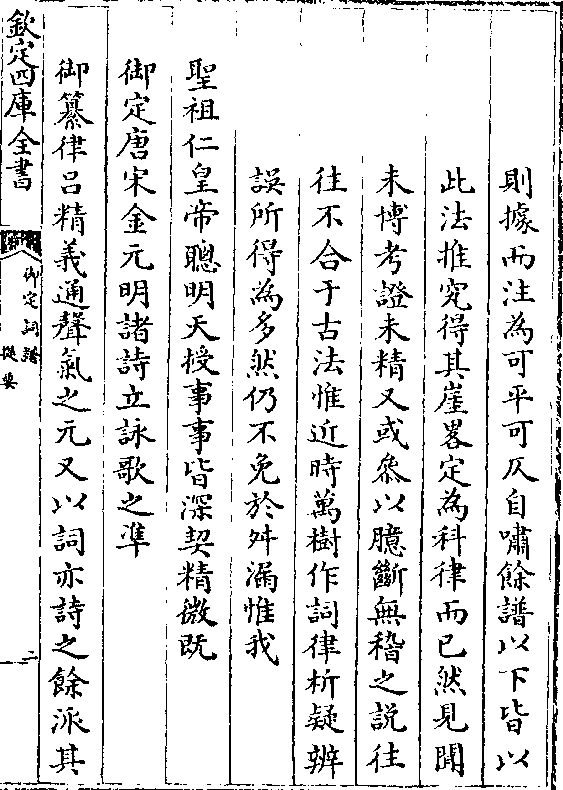 則據而注為可平可仄自嘯餘譜以下皆以
此法推究得其崖畧定為科律而已然見聞
未博考證未精又或參以臆斷無稽之説往
往不合于古法惟近時萬樹作詞律析疑辨
誤所得為多然仍不免於舛漏惟我
聖祖仁皇帝聰明天授事事皆深契精微既
御定唐宋金元明諸詩立詠歌之凖
御纂律吕精義通聲氣之元又以詞亦詩之餘派其
欽定四庫全書
御定詞譜
提要
二